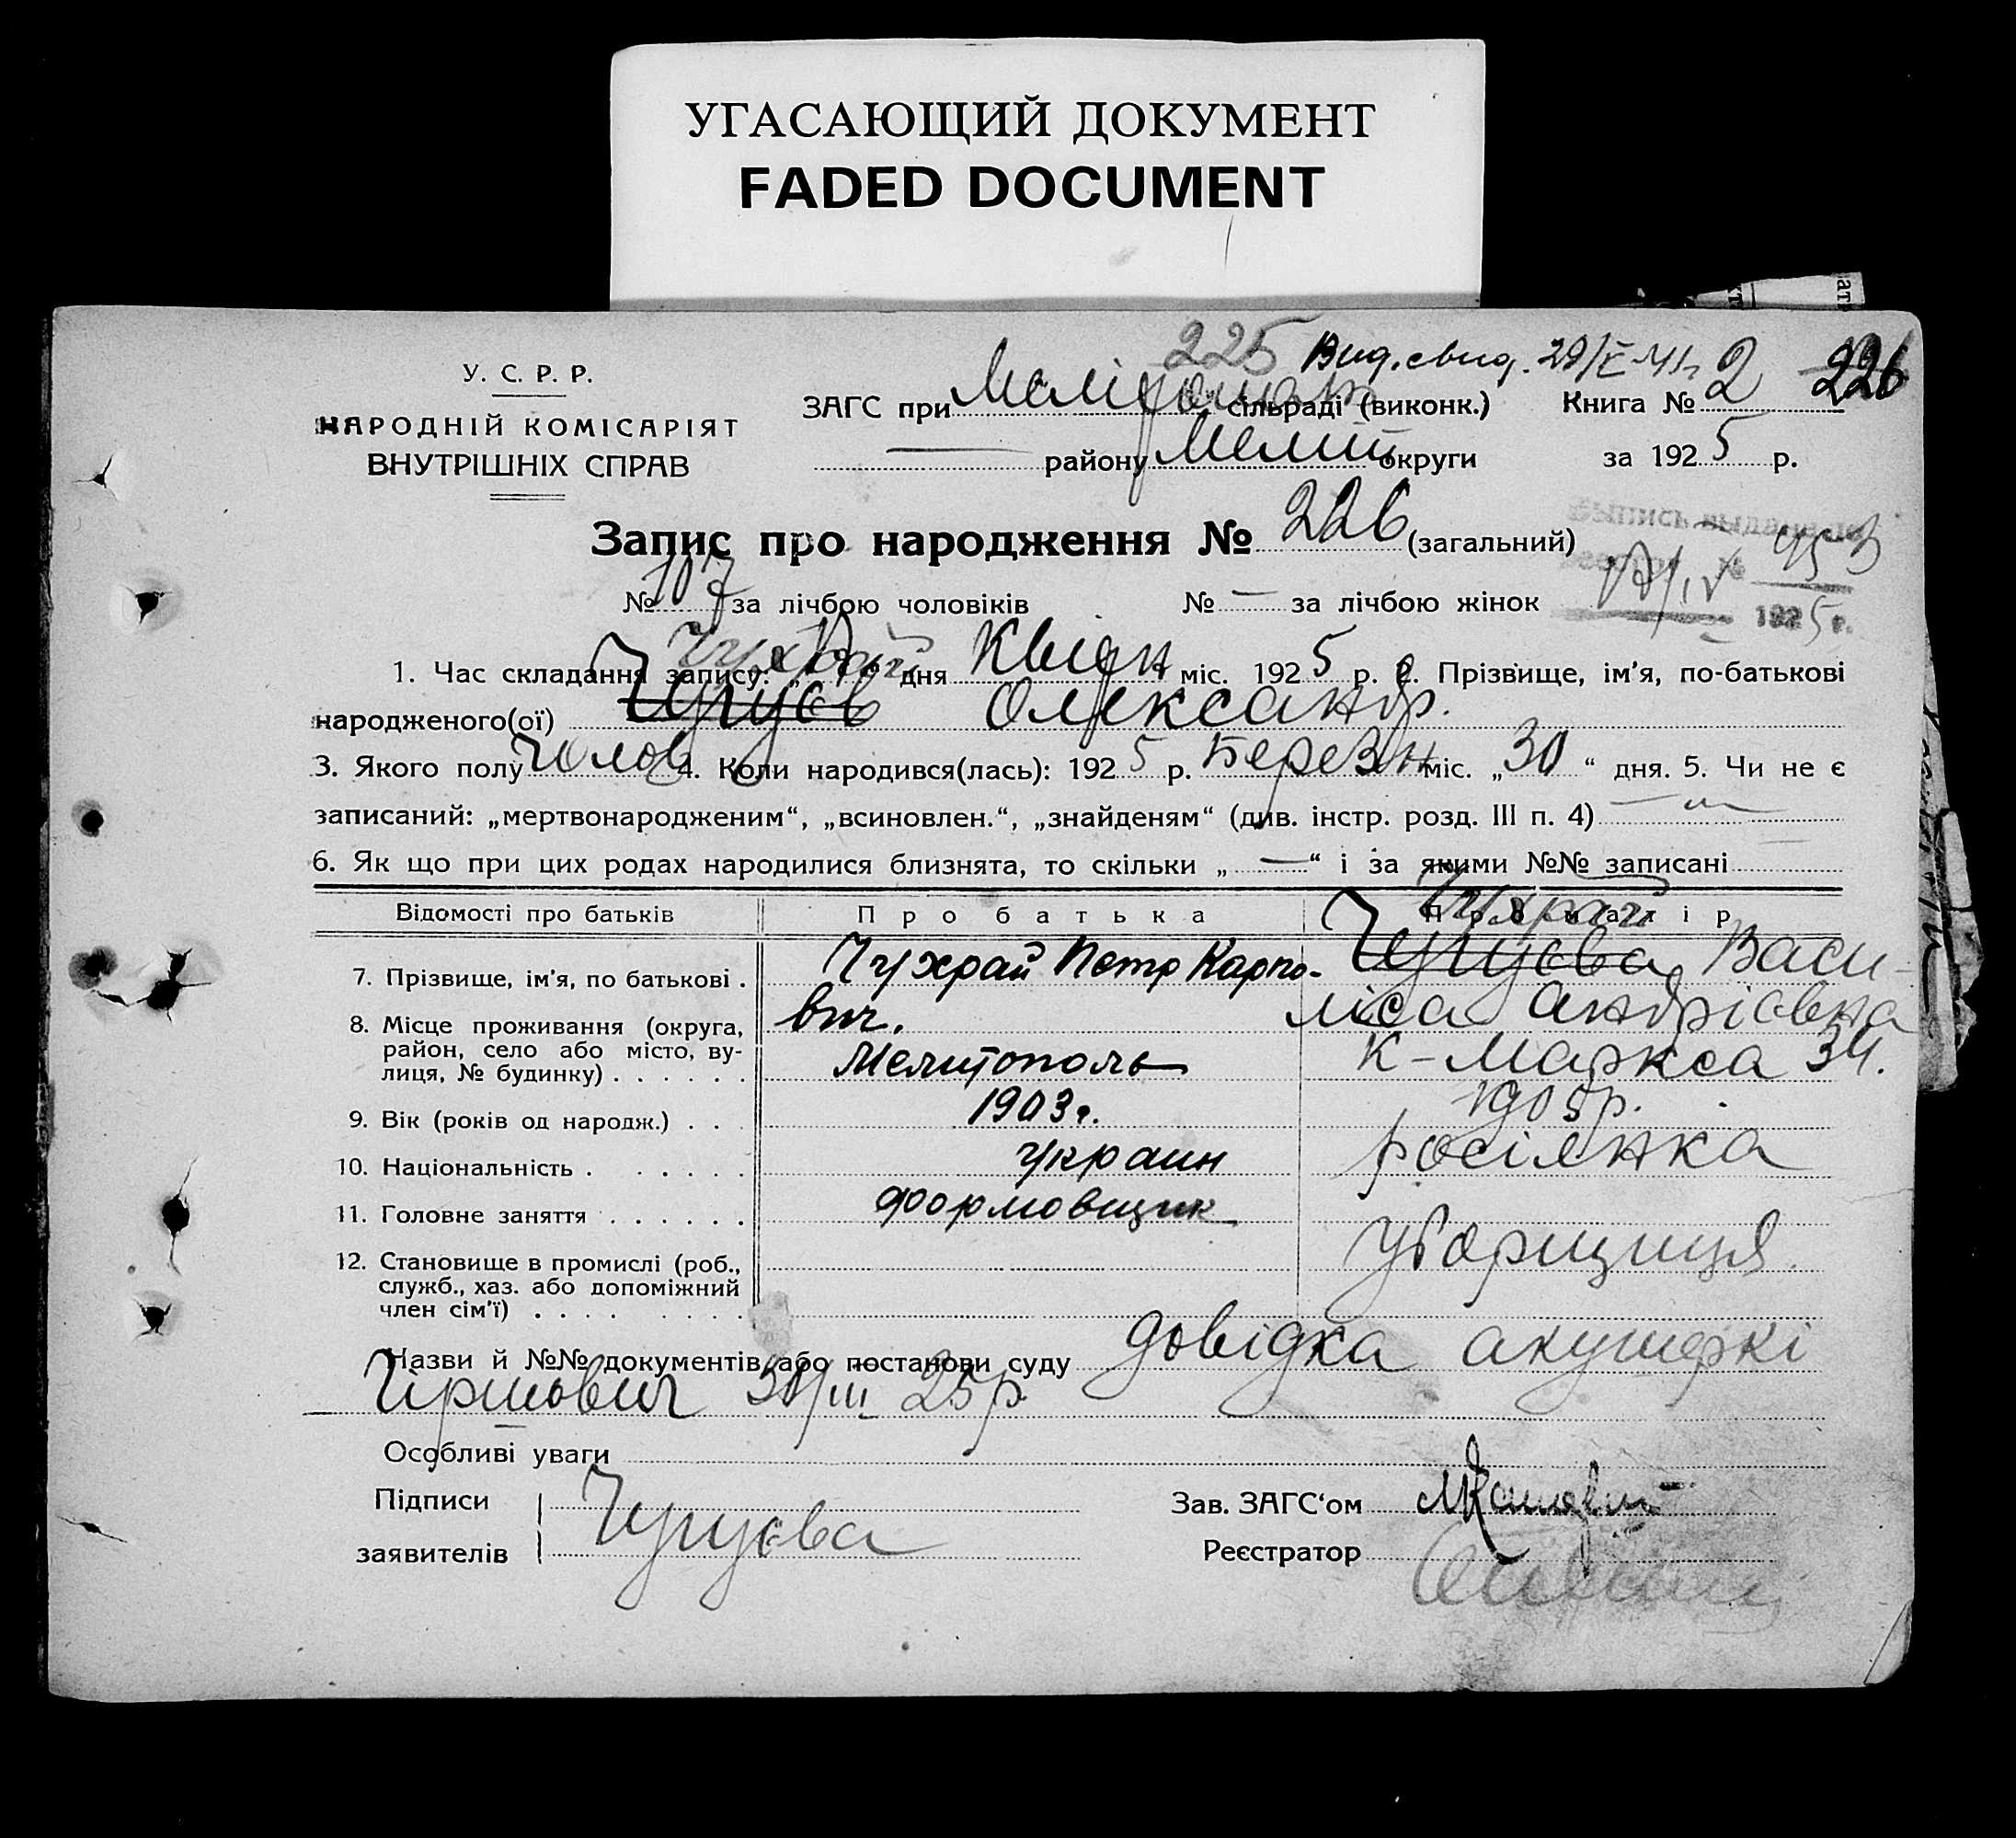 УГАСАЮЩИЙ ДОКУМЕНТ
FADED DOCUMENT
225 Вид. свид. 29/V-41г
226
У. С. Р. Р.
НАРОДНІЙ КОМІСАРІЯТ
ВНУТРІШНІХ СПРАВ
ЗАГС при сільраді (виконк.) Книга № 2
— району Меліт округи за 1925 р.
Запис про народження № 226 (загальний)
Выпись выдана по
№ 107 за лічбою чоловіків № — за лічбою жінок
1925 г.
Чухрай
1. Час складання запису: „17“ дня Квітн міс. 1925 р. 2. Прізвище, ім’я, по-батькові
народженого(ої) Чугуєв Олександр.
3. Якого полу чолов 4. Коли народився(лась): 1925 р. Березн міс. „30“ дня. 5. Чи не є
записаний: „мертвонародженим“, „всиновлен.“, „знайденям“ (див. інстр. розд. III п. 4) —
6. Як що при цих родах народилися близнята, то скільки „—“ і за якими №№ записані —
Відомості про батьків Про батька Про матір
Чухрай
7. Прізвище, ім’я, по батькові . Чухрай Петр Карпо- Чугуєва Васи-
вич. ліса Андрієвна
8. Місце проживання (округа,
район, село або місто, ву-
лиця, № будинку) . . . . . . Мелитополь К-Маркса 34.
9. Вік (років од народж.) . . . 1903г. 1905р.
10. Національність . . . . . . Украин росіянка
11. Головне заняття . . . . . . формовщик
12. Становище в промислі (роб.,
служб., хаз. або допоміжний
член сім’ї) . . . . . . . . Уборщиця.
Назви й №№ документів або постанови суду довідка акушеркі
30/III 25р
Особливі уваги
Підписи
заявителів Чугуєва
Зав. ЗАГС‘ом
Реєстратор